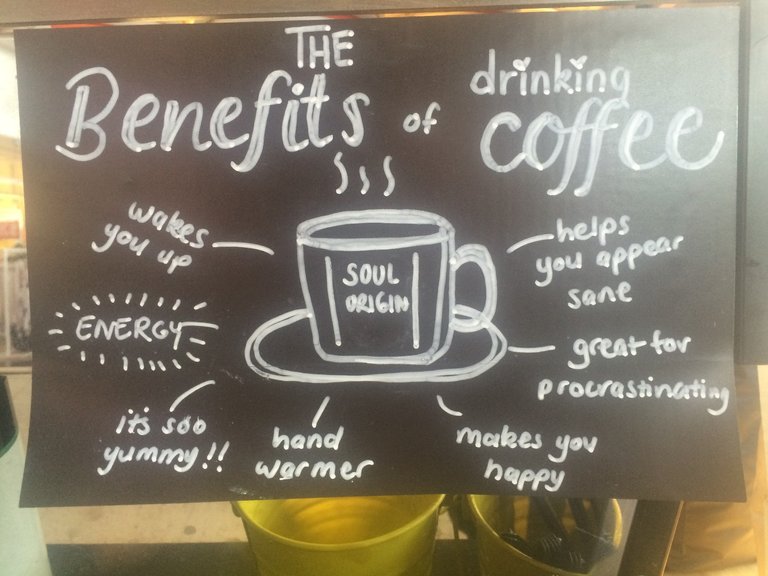 THE
Benefits of drinking
coffee
wakes
you up
helps
you appear
sane
SOUL
ORIGIN
ENERGY
great for
procrastinating
it's soo
yummy!!
hand
warmer
makes you
happy